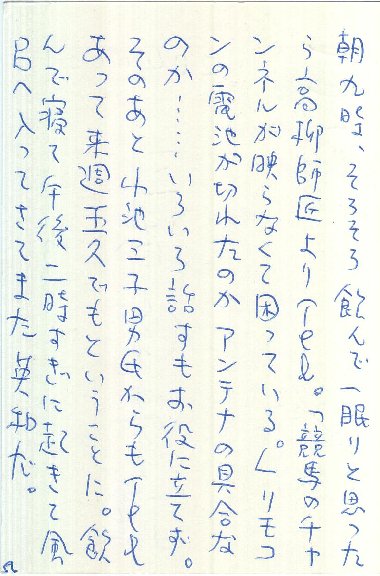 朝九時、そろそろ飲んで一眠りと思った
ら高柳師匠よりTel。「競馬のチャ
ンネルが映らなくて困っている。」リモコ
ンの電池が切れたのかアンテナの具合な
のか……いろいろ話すもお役に立てず。
そのあと小池三子男氏からもTel
あって来週玉久でもということに。飲
んで寝て午後二時すぎに起きて風
呂へ入ってきてまた英和だ。